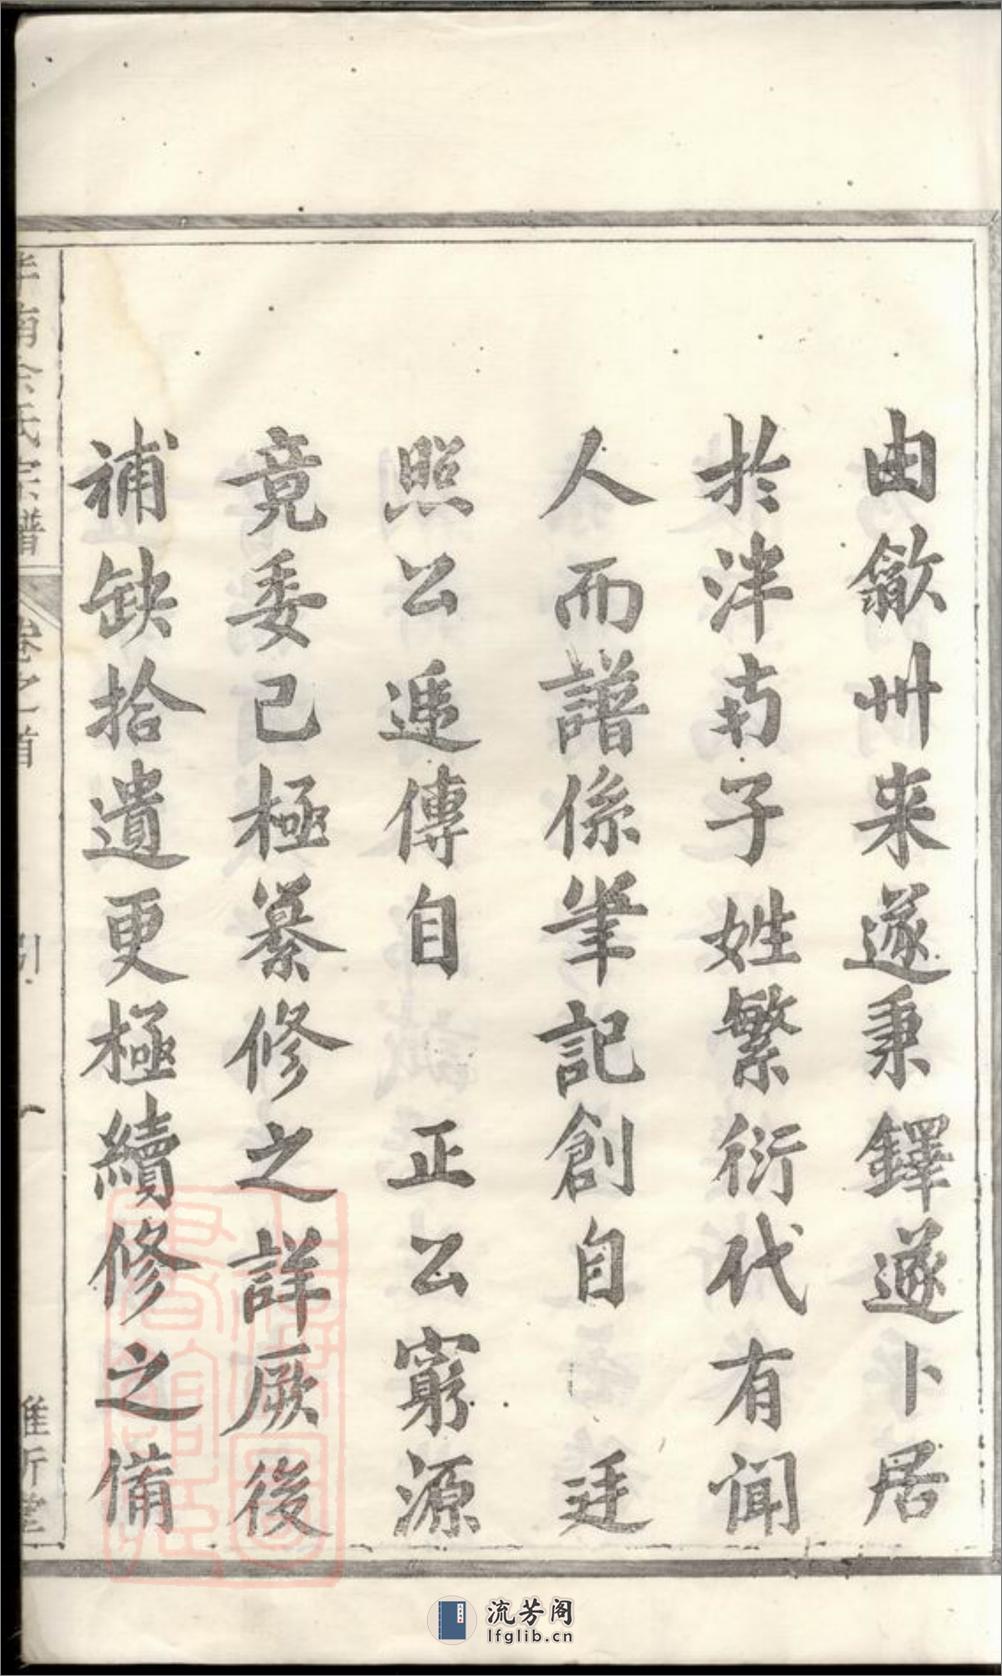 由歙州来遂秉鐸遂卜居
於泮南子姓繁衍代有聞
人而譜係筆記創自 廷
照公遞傳自 正公窮源
竟委已極纂修之詳厥後
補缺拾遺更極續修之備
南余氏宗譜
卷之首
引
一
流芳阁
lfglib.cn